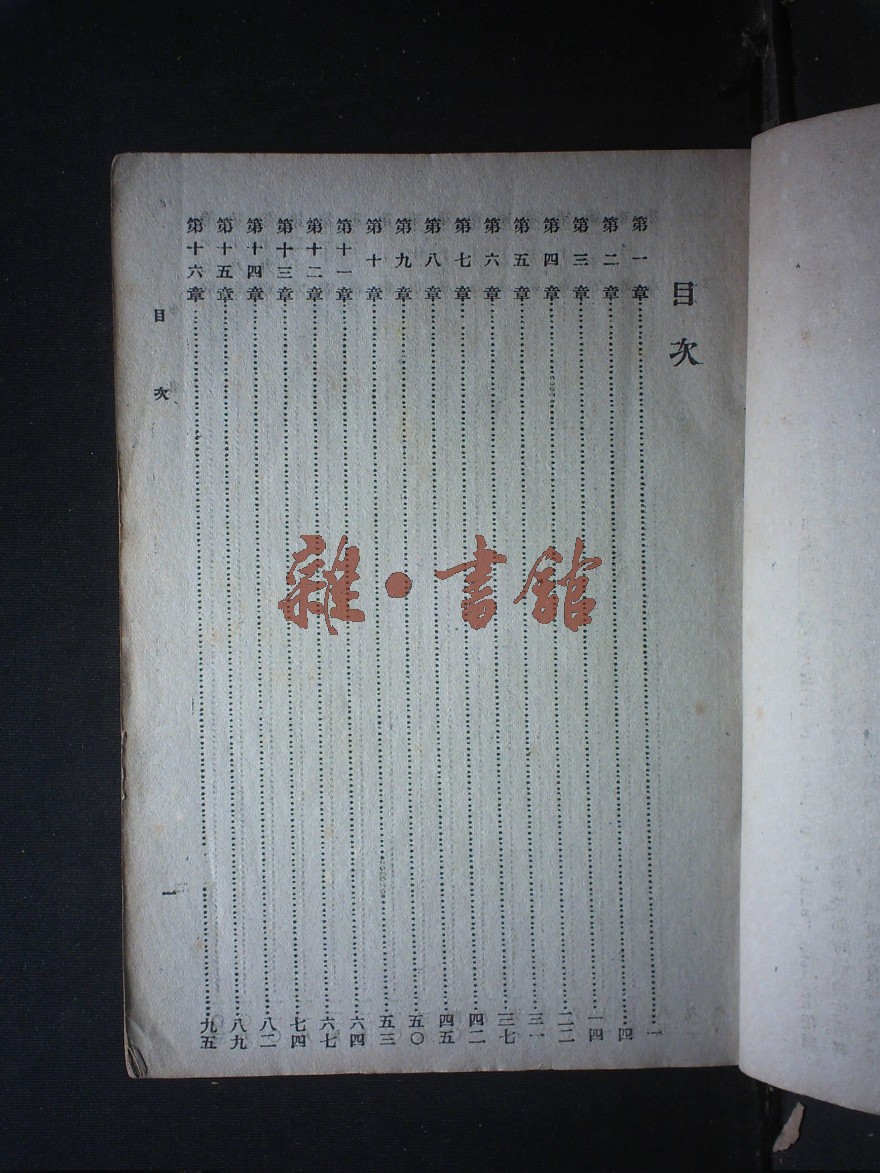 目次
第一章……一
第二章……四
第三章……一四
第四章……二二
第五章……三一
第六章……三七
第七章……四二
第八章……四五
第九章……五〇
第十章……五三
第十一章……六四
第十二章……六七
第十三章……七四
第十四章……八二
第十五章……八九
第十六章……九五
目次
一
雜·書館